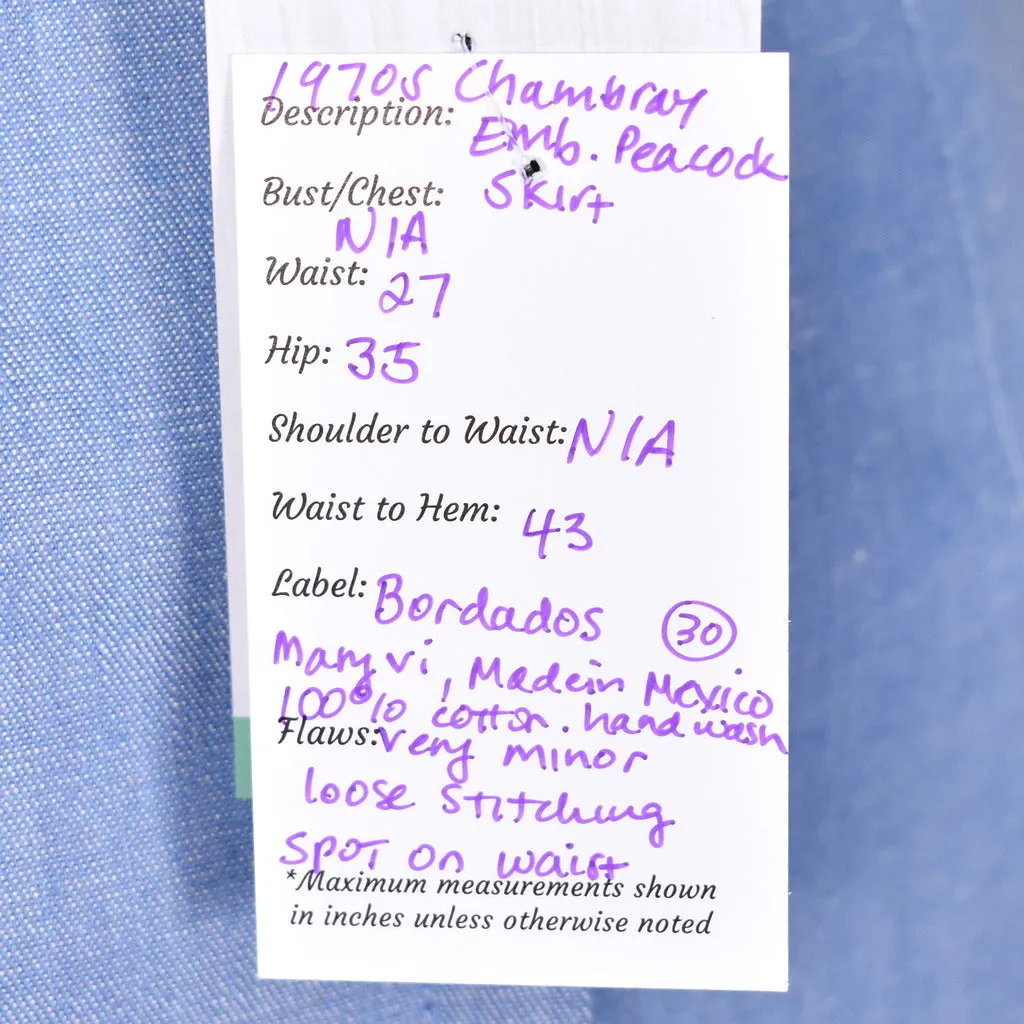 1970s Chambray
Description: Emb. Peacock
Bust/Chest: Skirt
N/A
Waist: 27
Hip: 35
Shoulder to Waist: N/A
Waist to Hem: 43
Label: Bordados 30
Maryvi, Made in Mexico
100% cotton. hand wash
Flaws: very minor
loose stitching
spot on waist
*Maximum measurements shown
in inches unless otherwise noted